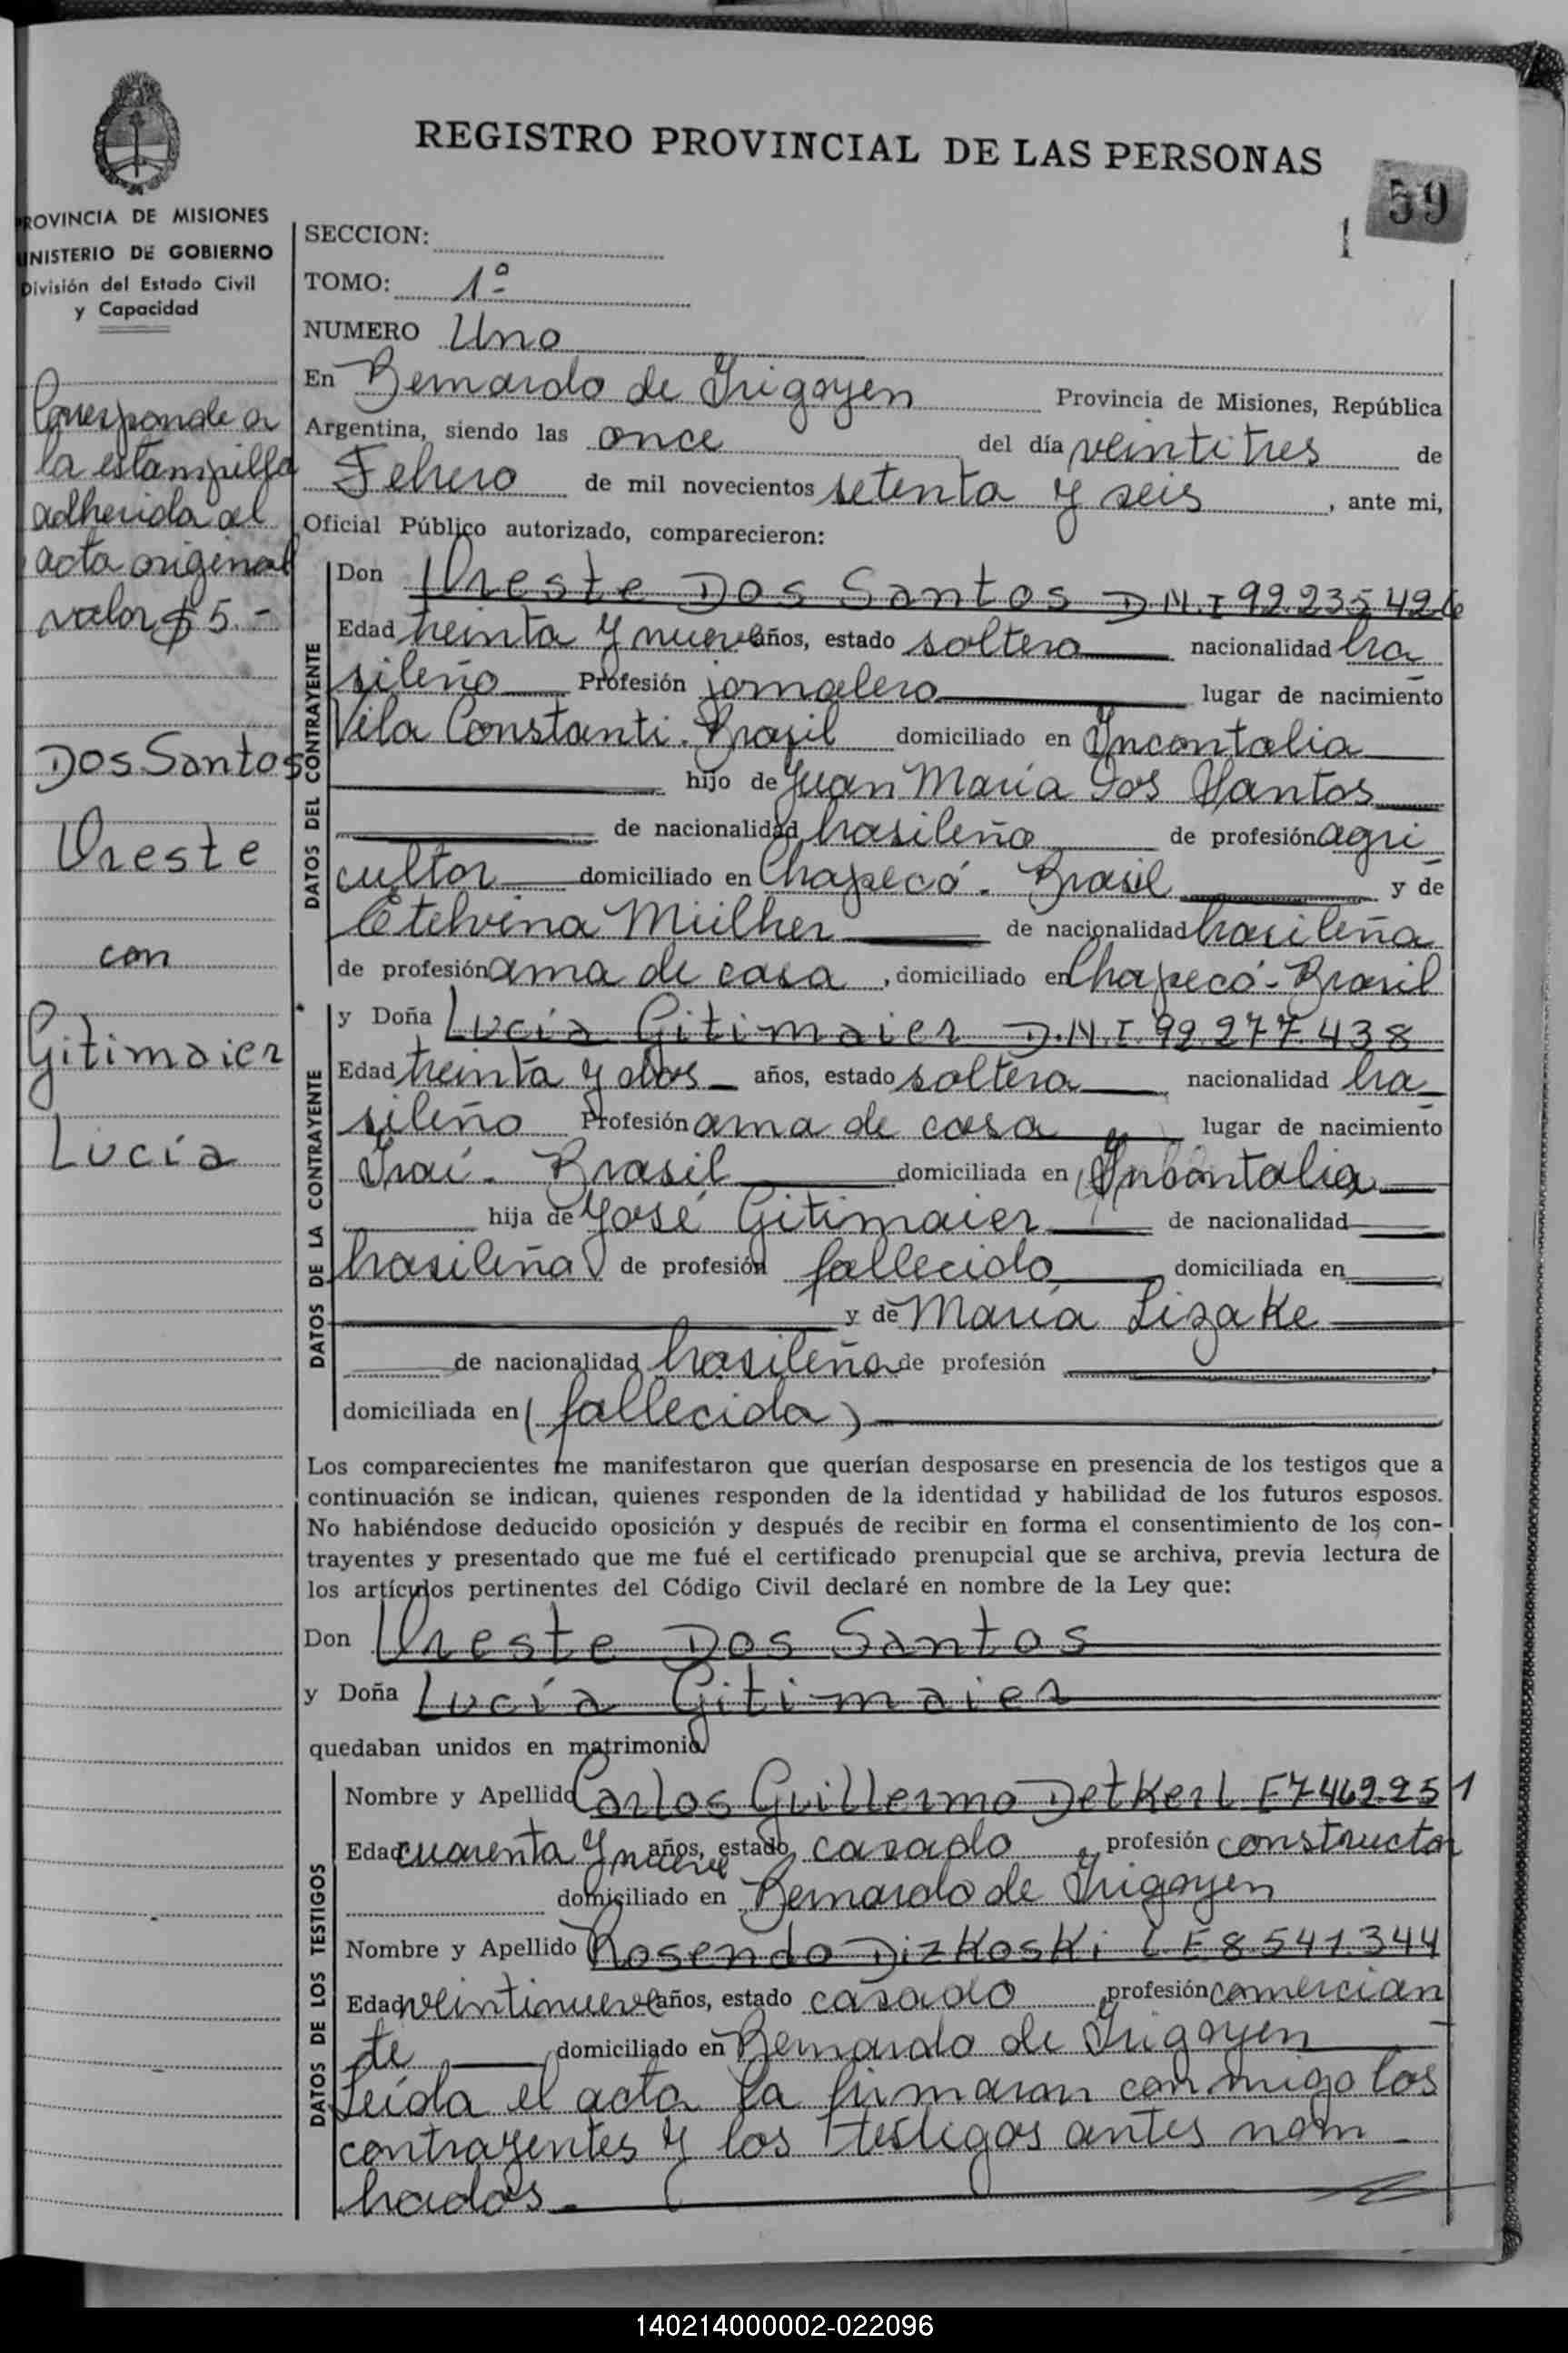 REGISTRO PROVINCIAL DE LAS PERSONAS
59
1
PROVINCIA DE MISIONES
MINISTERIO DE GOBIERNO
División del Estado Civil
y Capacidad
Corresponde a
la estampilla
adherida al
acta original
valor $ 5.-
Dos Santos
Oreste
con
Gitimaier
Lucía
SECCION:
TOMO: 1º
NUMERO Uno
En Bernardo de Irigoyen Provincia de Misiones, República
Argentina, siendo las once del día veintitres de
Febrero de mil novecientos setenta y seis, ante mi,
Oficial Público autorizado, comparecieron:
DATOS DEL CONTRAYENTE
Don Oreste Dos Santos D.N.I 92.235.426
Edad treinta y nueve años, estado soltero nacionalidad bra
sileño Profesión jornalero lugar de nacimiento
Vila Constanti. Brasil domiciliado en
hijo de Juan María Dos Santos
de nacionalidad brasileño de profesión agri
cultor domiciliado en Chapecó. Brasil y de
Etelvina Mülher de nacionalidad brasileña
de profesión ama de casa, domiciliado en Chapecó - Brasil
DATOS DE LA CONTRAYENTE
y Doña Lucía Gitimaier D.N.I. 92.277.438
Edad treinta y dos años, estado soltera nacionalidad bra
sileño Profesión ama de casa lugar de nacimiento
Iraí. Brasil domiciliada en
hija de José Gitimaier de nacionalidad
brasileña de profesión fallecido domiciliada en
y de María Lizake
de nacionalidad brasileña de profesión
domiciliada en (fallecida)
Los comparecientes me manifestaron que querían desposarse en presencia de los testigos que a
continuación se indican, quienes responden de la identidad y habilidad de los futuros esposos.
No habiéndose deducido oposición y después de recibir en forma el consentimiento de los con-
trayentes y presentado que me fué el certificado prenupcial que se archiva, previa lectura de
los artículos pertinentes del Código Civil declaré en nombre de la Ley que:
Don Oreste Dos Santos
y Doña Lucía Gitimaier
quedaban unidos en matrimonio
DATOS DE LOS TESTIGOS
Nombre y Apellido Carlos Guillermo Detker L E 7469.251
Edad cuarenta y nueve años, estado casado, profesión constructor
domiciliado en Bernardo de Irigoyen
Nombre y Apellido Rosendo Dizkoski L.E 8.541.344
Edad veintinueve años, estado casado, profesión comercian
te domiciliado en Bernardo de Irigoyen
Leída el acta la firmaron conmigo los
contrayentes y los testigos antes nom-
brados.
140214000002-022096